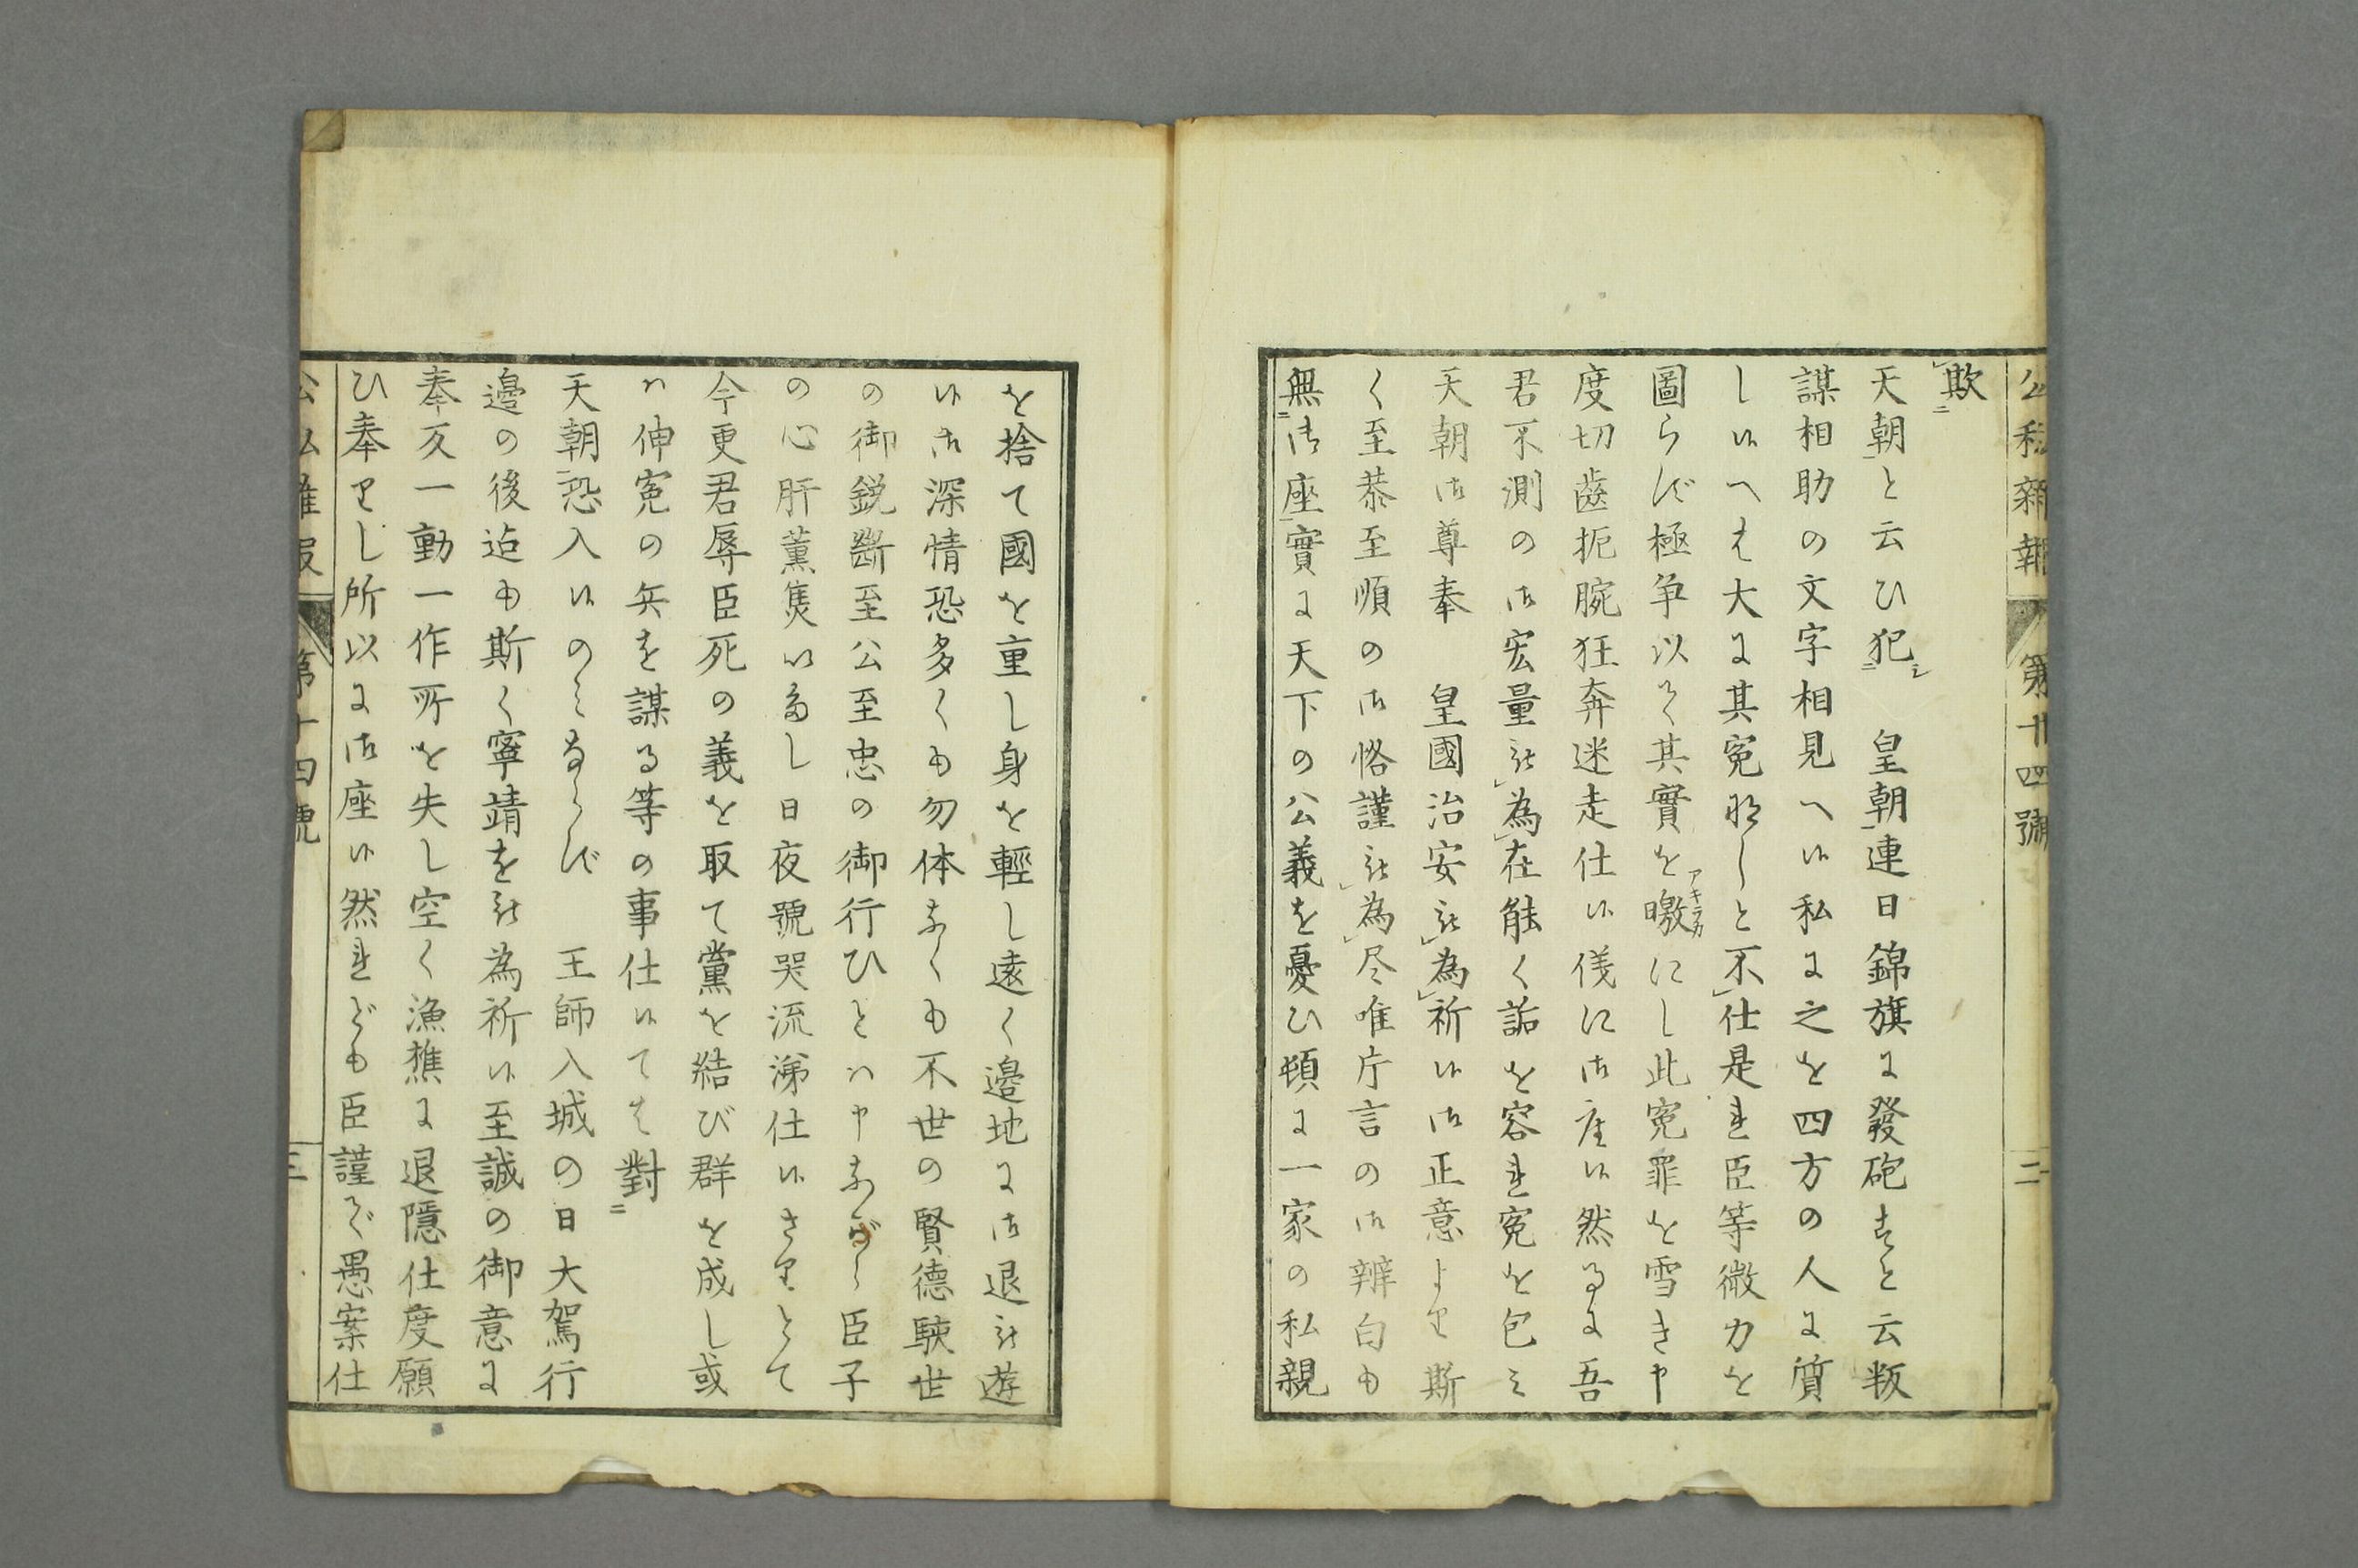 公私新報 第廿四號 二
欺
天朝と云ひ犯 皇朝連日錦旗に發砲すと云叛
謀相助の文字相見へ候私に之を四方の人に質
し候へは大に其寃なしと不仕是れ臣等微力を
圖らず極争以て其實を皦にし此寃罪を雪き申
アキラカ
度切齒扼腕狂奔迷走仕候儀に御座候然るに吾
君不測の御宏量被為在能く詬を容れ寃を包み
天朝御尊奉 皇國治安被為祈候御正意より斯
く至恭至順の御恪謹被為尽唯片言の御辨白も
無御座實に天下の公義を憂ひ頓に一家の私親
を捨て國を重し身を輕し遠く邊地に御退被遊
候御深情恐多くも勿体なくも不世の賢徳駭世
の御鋭斷至公至忠の御行ひとハ申ながら臣子
の心肝薫隻いたし日夜號哭流涕仕候さりとて
今更君辱臣死の義を取て黨を結び群を成し或
ハ伸寃の兵を謀る等の事仕候ては對
天朝恐入候のみならず 王師入城の日大駕行
邊の後迚も斯く寧靖を被為祈候至誠の御意に
奉戻一動一作所を失し空く漁樵に退隠仕度願
ひ奉りし所以に御座候然れども臣謹で愚案仕
公私雜報 第十四號 三